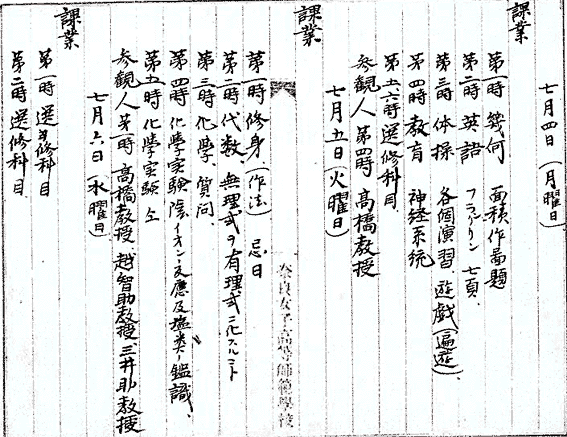 七月四日（月曜日）
課業
第一時 幾何 面積作图題
第二時 英語 フランクリン 七頁、
第三時 体操 各個演習、遊戯（遍遊）、
第四時 教育 神経系統
第五六時 選修科目、
参観人 第四時 高橋教授
七月五日（火曜日）
課業
第一時 修身（作法） 忌日
第二時 代数 無理式ヲ有理式ニ化スルコト
第三時 化學、質問、
第四時 化學実験 陰イオン、反應及塩类ノ鑑識、
第五時 化學実験 仝
参観人 第一時 高橋教授、越智助教授、三井助教授
七月六日（水曜日）
課業
第一時 選修科目
第二時 選修科目
奈良女子高等師範學校